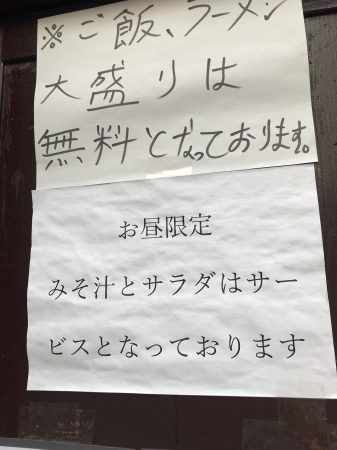 ※ご飯、ラーメン
大盛りは
無料となっております。
お昼限定
みそ汁とサラダはサー
ビスとなっております